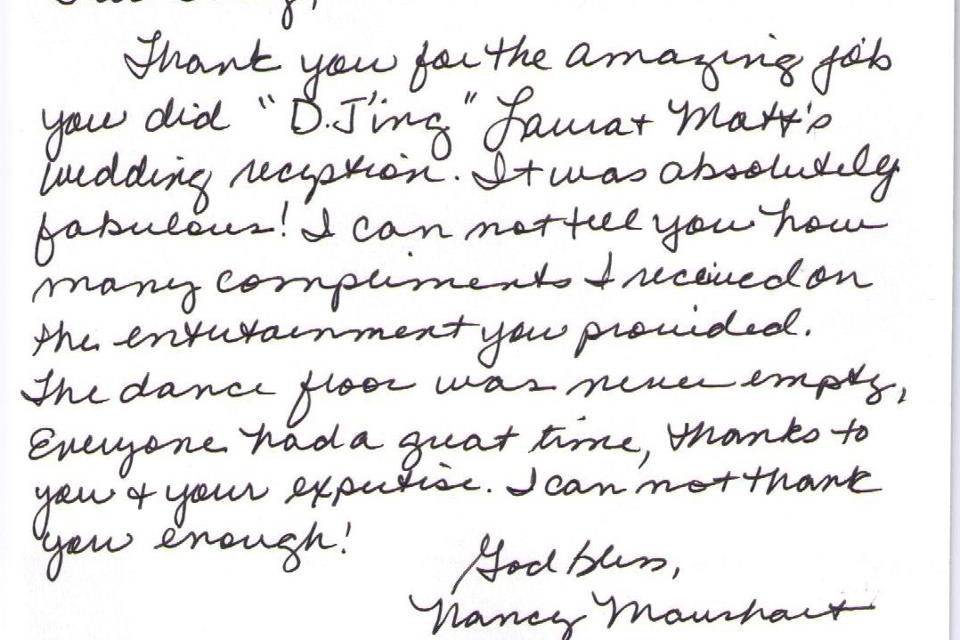 Thank you for the amazing job
you did "D.J'ing" Laura + Matt's
wedding reception. It was absolutely
fabulous! I can not tell you how
many compliments I received on
the entertainment you provided.
The dance floor was never empty,
Everyone had a great time, thanks to
you & your expertise. I can not thank
you enough!
God bless,
Nancy